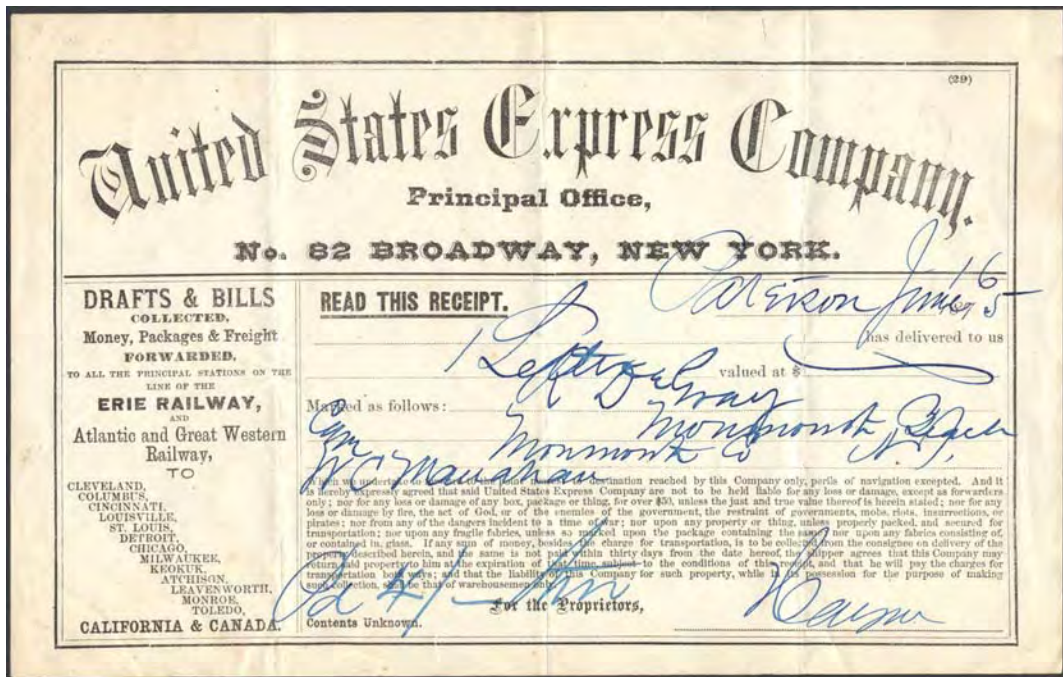 (29)
United States Express Company.
Principal Office,
No. 82 BROADWAY, NEW YORK.
DRAFTS & BILLS
COLLECTED,
Money, Packages & Freight
FORWARDED,
TO ALL THE PRINCIPAL STATIONS ON THE
LINE OF THE
ERIE RAILWAY,
AND
Atlantic and Great Western
Railway,
TO
CLEVELAND,
COLUMBUS,
CINCINNATI,
LOUISVILLE,
ST. LOUIS,
DETROIT,
CHICAGO,
MILWAUKEE,
KEOKUK,
ATCHISON,
LEAVENWORTH,
MONROE,
TOLEDO,
CALIFORNIA & CANADA.
Paterson June 16
READ THIS RECEIPT.
has delivered to us
1 valued at $
Gray
Marked as follows: Monmouth Beach
Monmouth Co N.J.
W C
When we undertake to destination reached by this Company only, perils of navigation excepted. And it
is hereby expressly agreed that said United States Express Company are not to be held liable for any loss or damage, except as forwarders
only; nor for any loss or damage of any box, package or thing, for over $50, unless the just and true value thereof is herein stated; nor for any
loss or damage by fire, the act of God, or of the enemies of the government, the restraint of governments, mobs, riots, insurrections, or
pirates; nor from any of the dangers incident to a time of war; nor upon any property or thing, unless properly packed, and secured for
transportation; nor upon any fragile fabrics, unless so marked upon the package containing the same; nor upon any fabrics consisting of,
or contained in, glass. If any sum of money, besides the charge for transportation, is to be collected from the consignee on delivery of the
property described herein, and the same is not paid within thirty days from the date hereof, the shipper agrees that this Company may
return said property to him at the expiration of that time, subject to the conditions of this receipt, and that he will pay the charges for
transportation both ways; and that the liability of this Company for such property, while in its possession for the purpose of making
such collection, shall be that of warehousemen only.
For the Proprietors,
Contents Unknown.